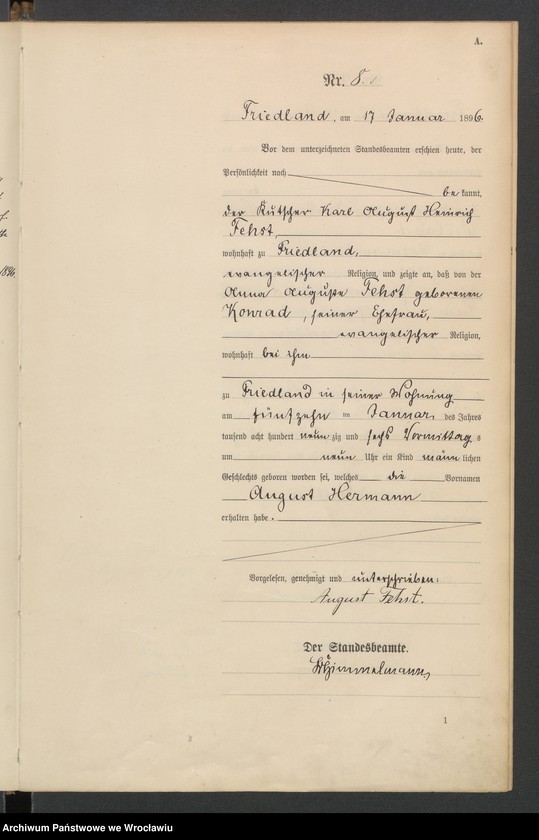 A.
Nr. 8
Friedland, am 17 Januar 1896.
Vor dem unterzeichneten Standesbeamten erschien heute, der
Persönlichkeit nach
be kannt,
der Kutscher Karl August Heinrich
Fehst,
wohnhaft zu Friedland,
evangelischer Religion, und zeigte an, daß von der
Anna Auguste Fehst geborenen
Konrad, seiner Ehefrau,
evangelischer Religion,
wohnhaft bei ihm
zu Friedland in seiner Wohnung
am fünfzehn ten Januar, des Jahres
tausend acht hundert neun zig und sechs Vormittag s
um neun Uhr ein Kind männ lichen
Geschlechts geboren worden sei, welches die Vornamen
August Hermann
erhalten habe.
Vorgelesen, genehmigt und unterschrieben:
August Fehst.
Der Standesbeamte.
1
1896.
Archiwum Państwowe we Wrocławiu